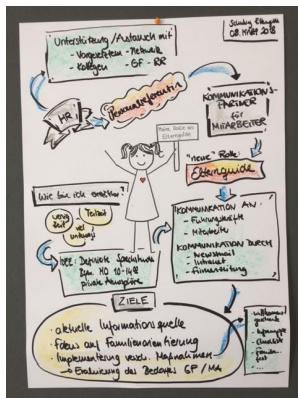 Schulung Elternguide
08. März 2018
Unterstützung/Austausch mit
- Vorgesetzten - Netzwerk
- Kollegen - GF - BR
HR
Personalreferentin
KOMMUNIKATIONS-
PARTNER
für
MITARBEITER
Meine Rolle als
Elternguide
"neue" Rolle:
Elternguide
Wie bin ich erreichbar?
wenig
Zeit
Teilzeit
viel
unterwegs
IDEE: Definierte Sprechstunde
Bspw. MO 10-14h
private Atmosphäre
KOMMUNIKATION AN:
- Führungskräfte
- Mitarbeiter
KOMMUNIKATION DURCH
- Newsmail
- Intranet
- Firmenzeitung
ZIELE
- aktuelle Informationsquelle
- Fokus auf Familienorientierung
- Implementierung versch. Maßnahmen
→ Evaluierung des Bedarfes GF / MA
- Infomappe
- Checkliste